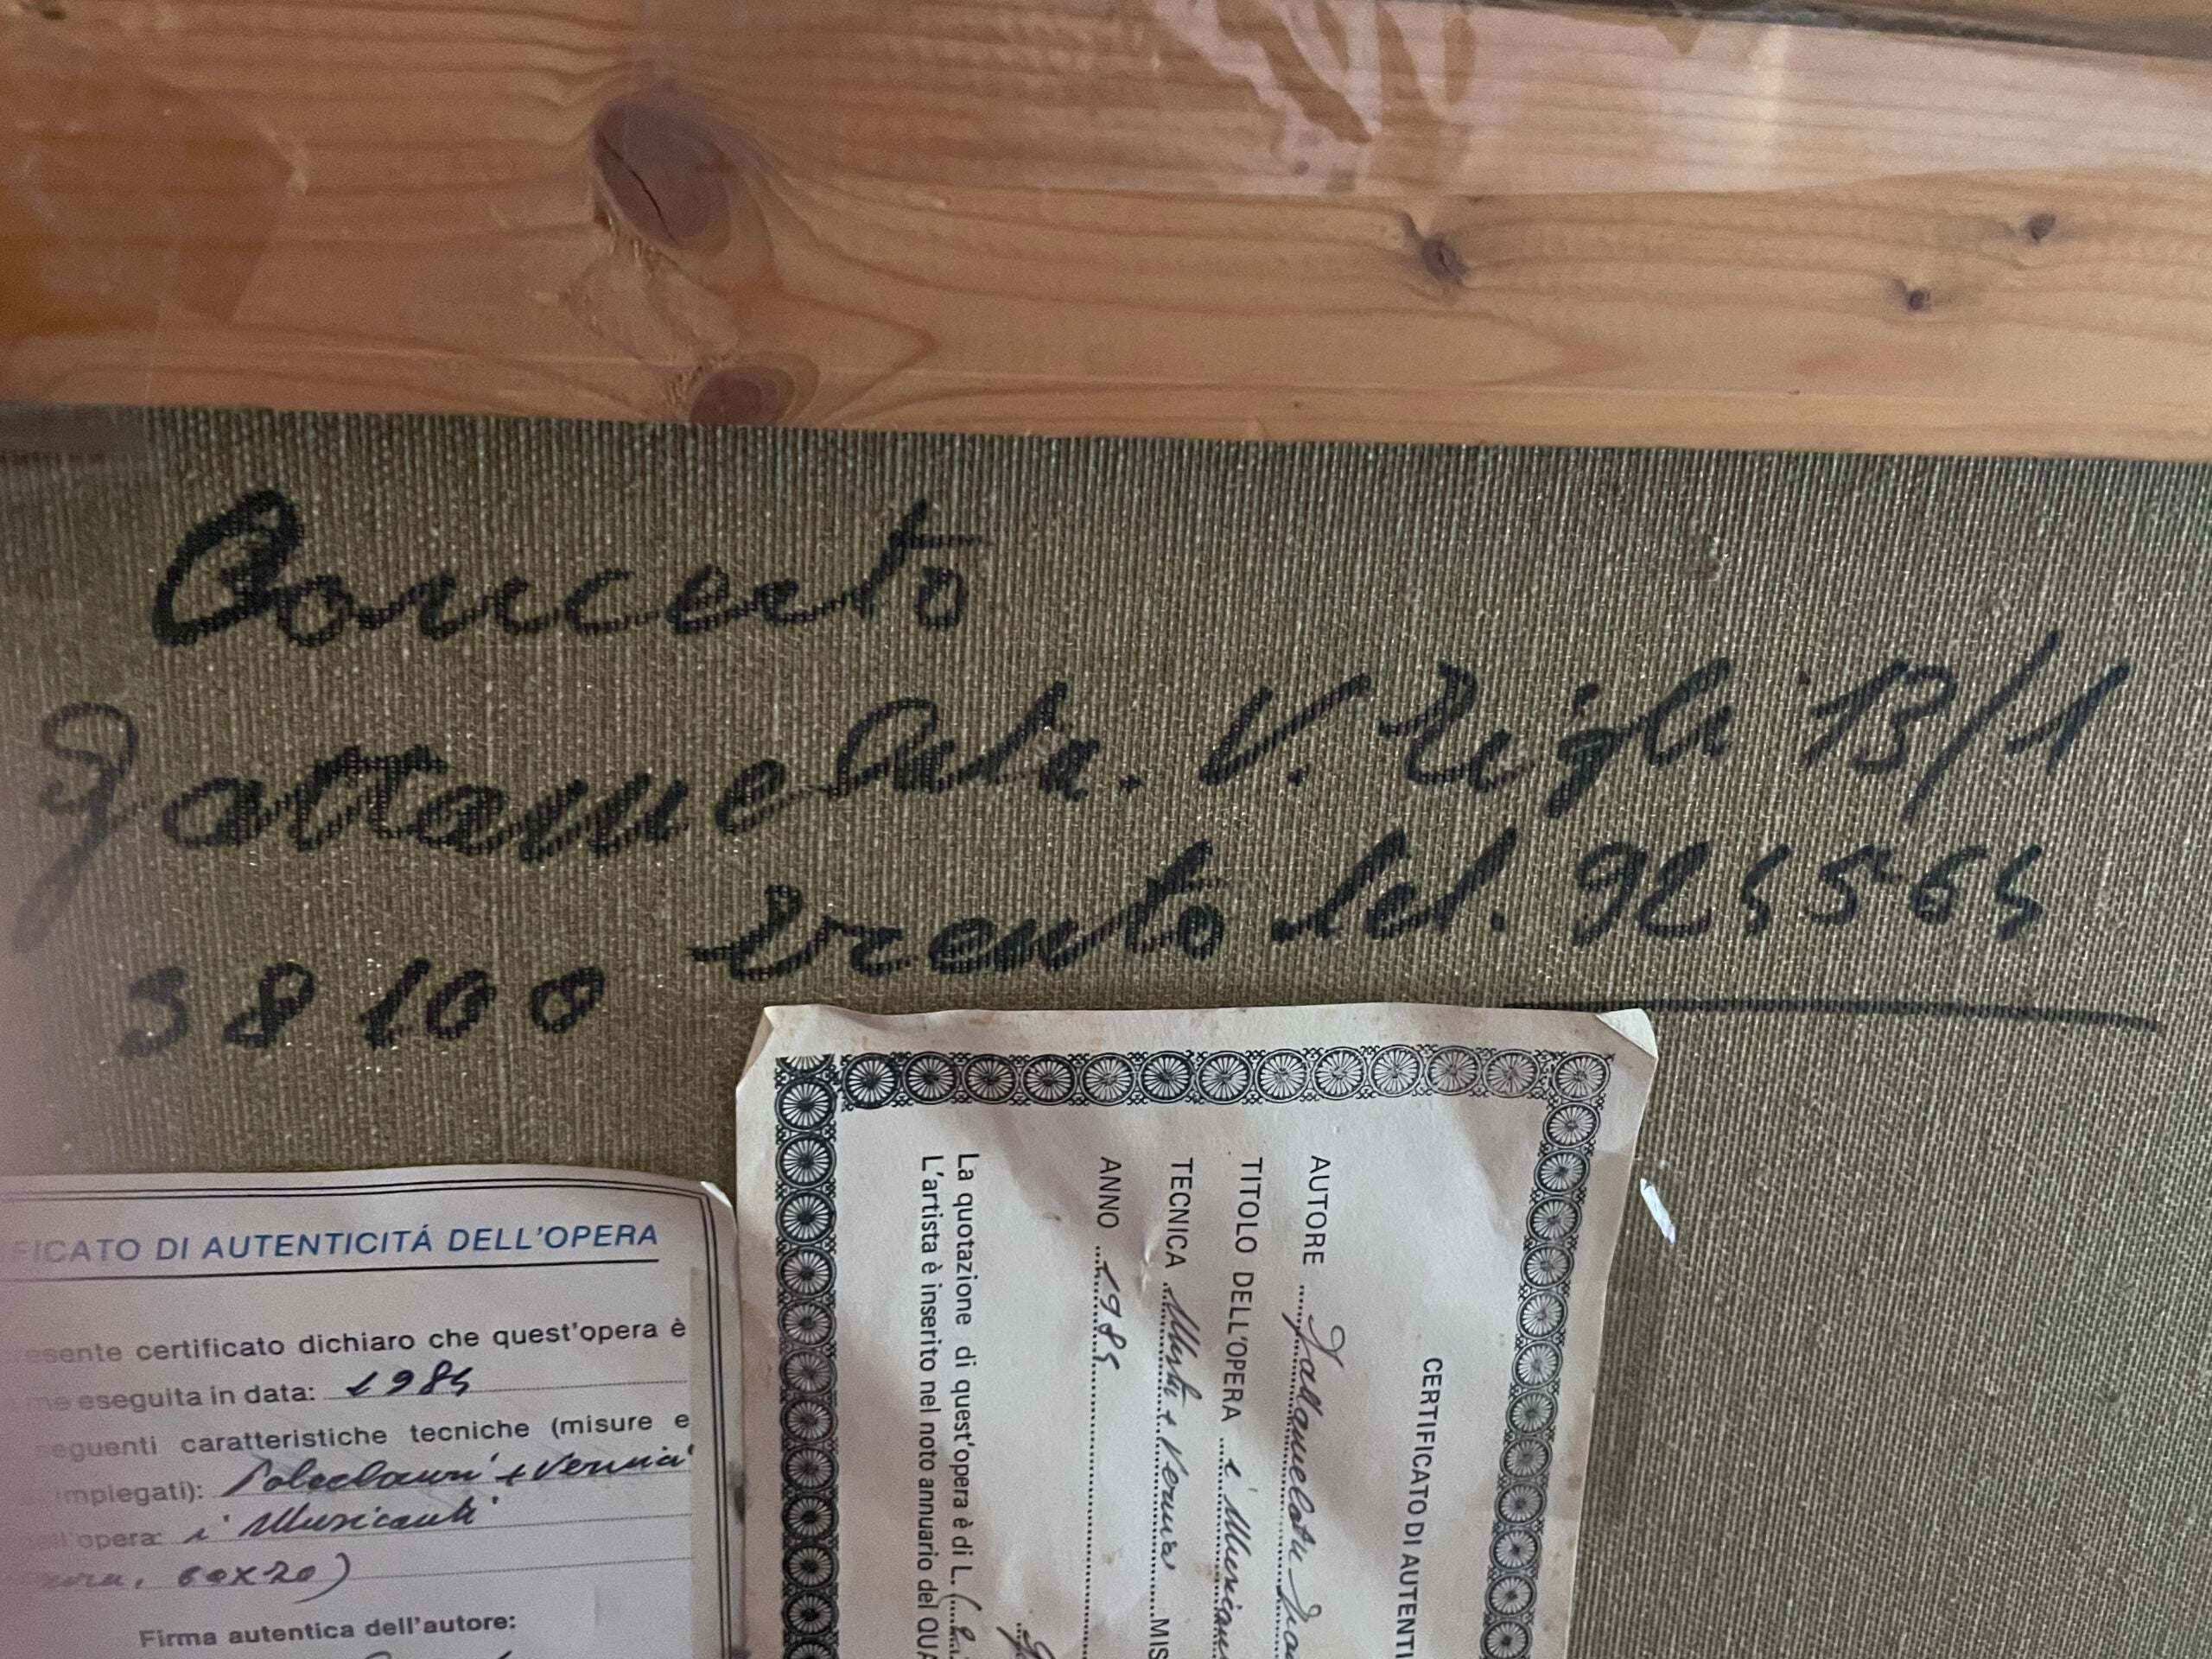 Concerto
Gattamelata. V. Zigli 13/1
38100 Trento tel. 925565
FICATO DI AUTENTICITÁ DELL'OPERA
esente certificato dichiaro che quest'opera è
me eseguita in data: 1985
seguenti caratteristiche tecniche (misure e
impiegati): + Vernici
all'opera: i Musicanti
60x20)
Firma autentica dell'autore:
CERTIFICATO DI AUTENTI
AUTORE Gattamelata
TITOLO DELL'OPERA i Musican
TECNICA + Vernici MIS
ANNO 1985
La quotazione di quest'opera è di L. (
L'artista è inserito nel noto annuario del QUA